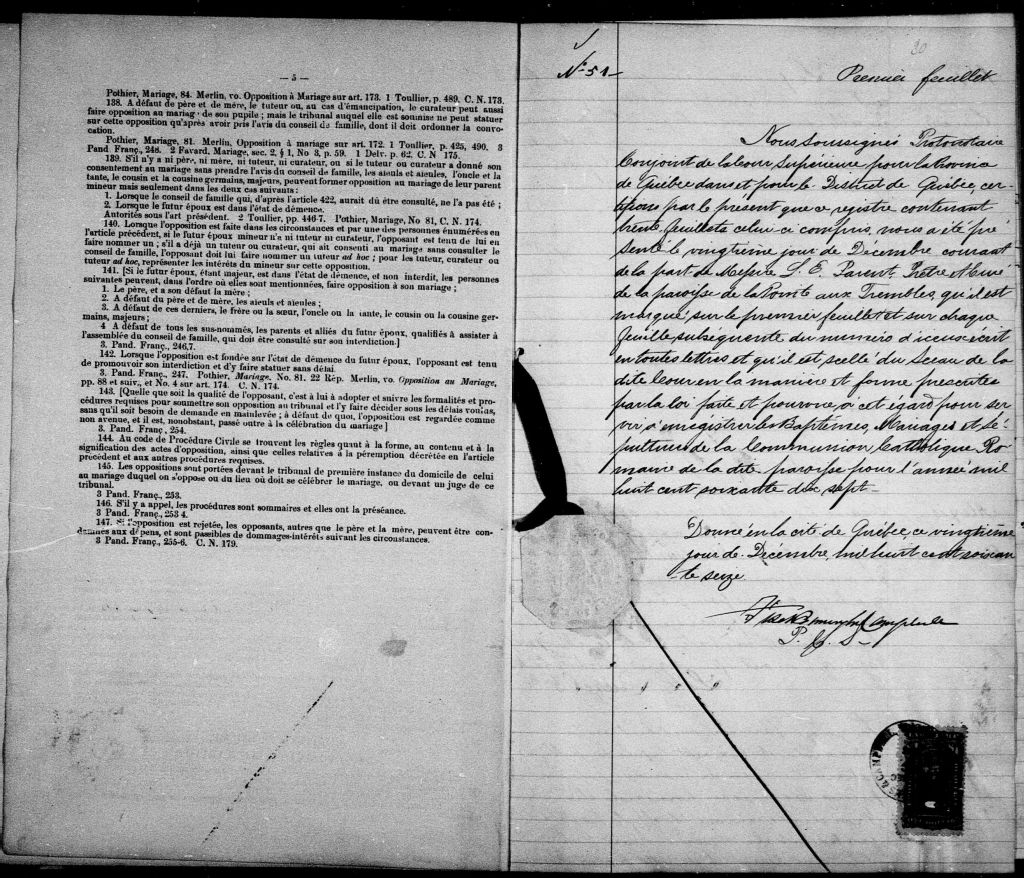 — 5 —
Pothier, Mariage, 84. Merlin, vo. Opposition à Mariage sur art. 173. 1 Toullier, p. 489. C. N. 173.
138. A défaut de père et de mère, le tuteur ou, au cas d'émancipation, le curateur peut aussi
faire opposition au mariage de son pupile ; mais le tribunal auquel elle est soumise ne peut statuer
sur cette opposition qu'après avoir pris l'avis du conseil de famille, dont il doit ordonner la convo-
cation.
Pothier, Mariage, 81. Merlin, Opposition à mariage sur art. 172. 1 Toullier, p. 425, 490. 3
Pand. Franç., 248. 2 Favard, Mariage, sec. 2, § 1, No 3, p. 59. 1 Delv. p. 62. C. N 175.
139. S'il n'y a ni père, ni mère, ni tuteur, ni curateur, ou si le tuteur ou curateur a donné son
consentement au mariage sans prendre l'avis du conseil de famille, les aïeuls et aïeules, l'oncle et la
tante, le cousin et la cousine germains, majeurs, peuvent former opposition au mariage de leur parent
mineur mais seulement dans les deux cas suivants :
1. Lorsque le conseil de famille qui, d'après l'article 422, aurait dû être consulté, ne l'a pas été ;
2. Lorsque le futur époux est dans l'état de démence.
Autorités sous l'art présédent. 2 Toullier, pp. 446-7. Pothier, Mariage, No 81, C. N. 174.
140. Lorsque l'opposition est faite dans les circonstances et par une des personnes énumérées en
l'article précédent, si le futur époux mineur n'a ni tuteur ni curateur, l'opposant est tenu de lui en
faire nommer un ; s'il a déjà un tuteur ou curateur, qui ait consenti au mariage sans consulter le
conseil de famille, l'opposant doit lui faire nommer un tuteur ad hoc ; pour les tuteur, curateur ou
tuteur ad hoc, représenter les intérêts du mineur sur cette opposition.
141. [Si le futur époux, étant majeur, est dans l'état de démence, et non interdit, les personnes
suivantes peuvent, dans l'ordre où elles sont mentionnées, faire opposition à son mariage ;
1. Le père, et a son défaut la mère ;
2. A défaut du père et de mère, les aïeuls et aïeules ;
3. A défaut de ces derniers, le frère ou la sœur, l'oncle ou la tante, le cousin ou la cousine ger-
mains, majeurs ;
4 A défaut de tous les sus-nommés, les parents et alliés du futur époux, qualifiés à assister à
l'assemblée du conseil de famille, qui doit être consulté sur son interdiction.]
3. Pand. Franç., 246,7.
142. Lorsque l'opposition est fondée sur l'état de démence du futur époux, l'opposant est tenu
de promouvoir son interdiction et d'y faire statuer sans délai.
3. Pand. Franç., 247. Pothier, Mariage, No. 81. 22 Rép. Merlin, vo. Opposition au Mariage,
pp. 88 et suiv., et No. 4 sur art. 174. C. N. 174.
143. [Quelle que soit la qualité de l'opposant, c'est à lui à adopter et suivre les formalités et pro-
cédures requises pour soumettre son opposition au tribunal et l'y faire décider sous les délais voulus,
sans qu'il soit besoin de demande en mainlevée ; à défaut de quoi, l'opposition est regardée comme
non avenue, et il est, nonobstant, passé outre à la célébration du mariage]
3. Pand. Franç., 254.
144. Au code de Procédure Civile se trouvent les règles quant à la forme, au contenu et à la
signification des actes d'opposition, ainsi que celles relatives à la péremption décrétée en l'article
précédent et aux autres procédures requises.
145. Les oppositions sont portées devant le tribunal de première instance du domicile de celui
au mariage duquel on s'oppose ou du lieu où doit se célébrer le mariage. ou devant un juge de ce
tribunal.
3 Pand. Franç., 253.
146. S'il y a appel, les procédures sont sommaires et elles ont la préséance.
3 Pand. Franç., 253 4.
147. Si l'opposition est rejetée, les opposants, autres que le père et la mère, peuvent être con-
damnes aux dépens, et sont passibles de dommages-intérêts suivant les circonstances.
3 Pand. Franç., 255-6. C. N. 179.
20
No 51
Premier feuillet
Nous Soussignés Protonotaire
Conjoint de la Cour Supérieure pour la Provin
de Québec dans et pour le District de Québec, cer-
tifions par le présent que ce registre contenant
trente feuillets celui-ci compris, nous a été pré
senté le vingtième jour de Décembre courant
de la part de Messire Parent, Prêtre Curé
de la paroisse de la Pointe aux Trembles, qu'il est
marqué sur le premier feuillet et sur chaque
feuille subséquente du numéro d'iceux écrit
en toutes lettres et qu'il est scellé du Sceau de la
dite Cour en la manière et forme prescrites
par la loi faite et pourvue à cet égard pour ser
vir à enregistrer les Baptêmes, Mariages et Sé-
pultures de la Communion Catholique Ro
maine de la dite paroisse pour l'année mil
huit cent soixante dix sept.
Donné en la cité de Québec, ce vingtième
jour de Décembre, mil huit cent soixan
te seize
Campbell
P. C. S.